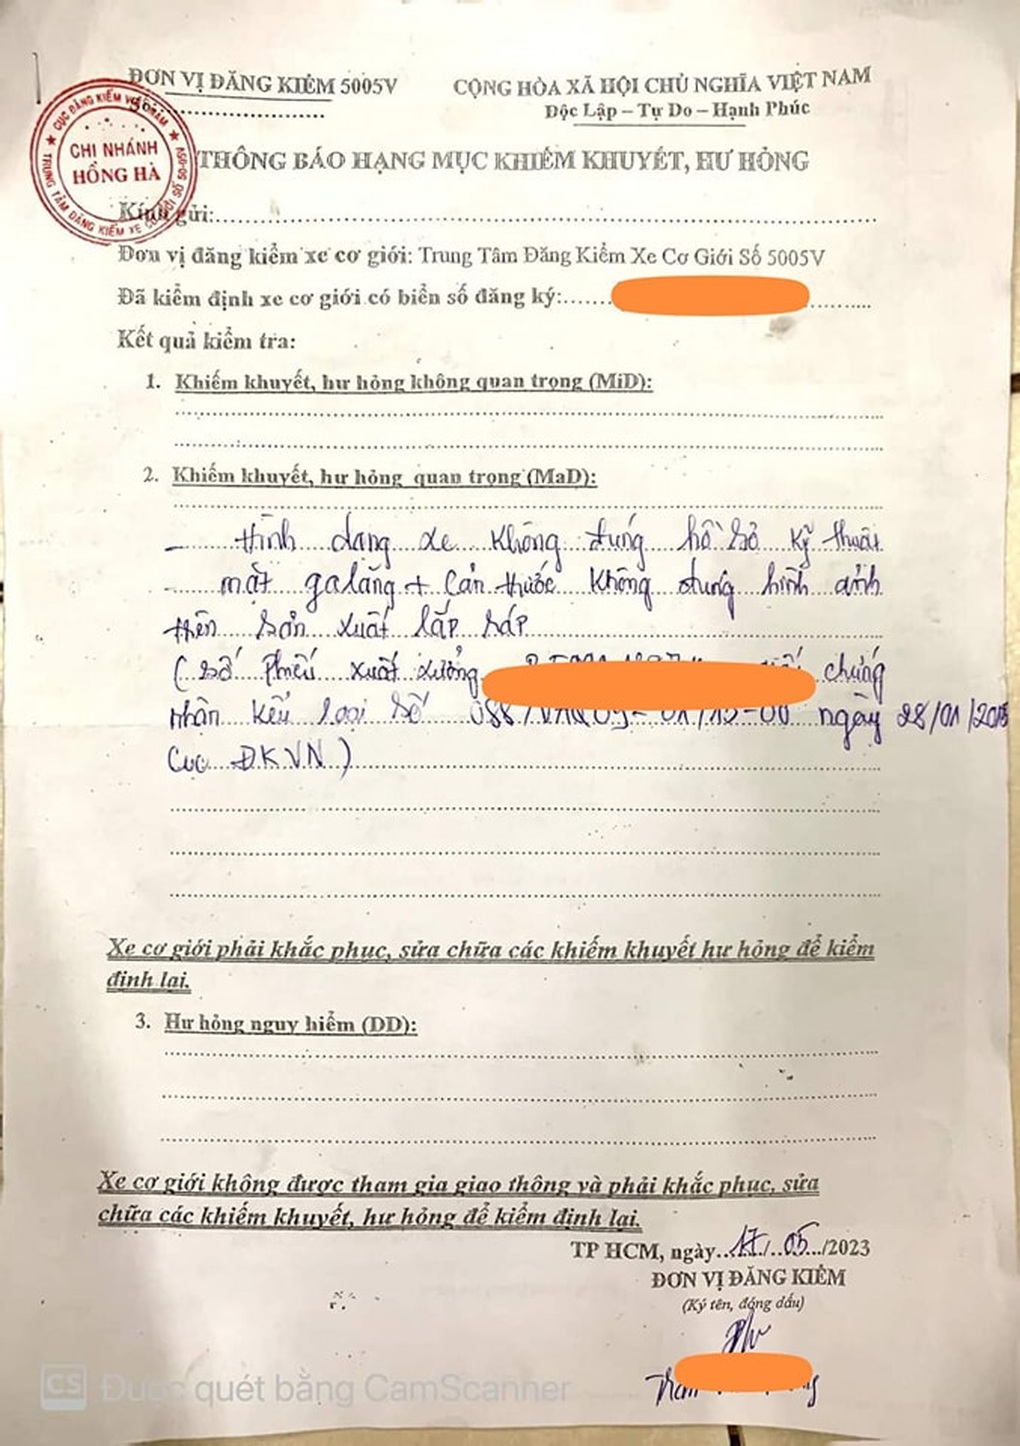 ĐƠN VỊ ĐĂNG KIỂM 5005V
CỘNG HÒA XÃ HỘI CHỦ NGHĨA VIỆT NAM
Số:
Độc Lập – Tự Do – Hạnh Phúc
CỤC ĐĂNG KIỂM VIỆT NAM
CHI NHÁNH
HỒNG HÀ
TRUNG TÂM ĐĂNG KIỂM XE CƠ GIỚI SỐ 50-05V
THÔNG BÁO HẠNG MỤC KHIẾM KHUYẾT, HƯ HỎNG
Kính gửi:
Đơn vị đăng kiểm xe cơ giới: Trung Tâm Đăng Kiểm Xe Cơ Giới Số 5005V
Đã kiểm định xe cơ giới có biển số đăng ký:
Kết quả kiểm tra:
1. Khiếm khuyết, hư hỏng không quan trọng (MiD):
2. Khiếm khuyết, hư hỏng quan trọng (MaD):
- Hình dạng xe không đúng hồ sơ kỹ thuật
- mặt galăng + Cản trước không đúng hình ảnh
trên sản xuất lắp ráp
( số phiếu xuất xưởng chứng
nhận kểu loại số ngày 28/01/2015
Cục ĐKVN )
Xe cơ giới phải khắc phục, sửa chữa các khiếm khuyết hư hỏng để kiểm
định lại.
3. Hư hỏng nguy hiểm (DD):
Xe cơ giới không được tham gia giao thông và phải khắc phục, sửa
chữa các khiếm khuyết, hư hỏng để kiểm định lại.
TP HCM, ngày 17/05/2023
ĐƠN VỊ ĐĂNG KIỂM
(Ký tên, đóng dấu)
CS Được quét bằng CamScanner